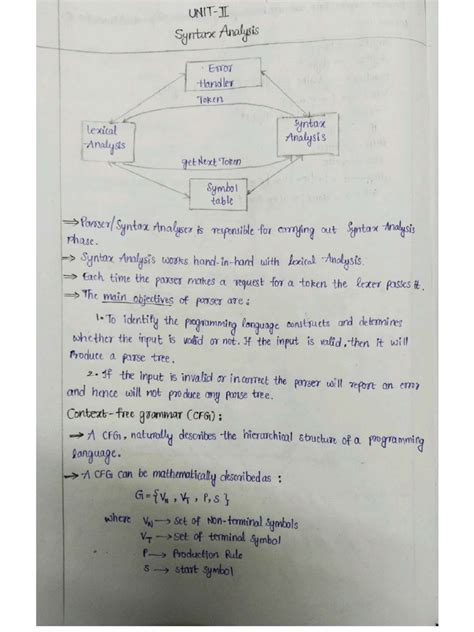 UNIT-II
Syntax Analysis
Error
Handler
Token
Lexical
Analysis
Syntax
Analysis
getNext Token
Symbol
table
→ Parser/Syntax Analyser is reponsible for carrying out Syntax Analysis
Phase.
→ Syntax Analysis works hand-in-hand with lexical Analysis.
→ Each time the parser makes a request for a token the lexer passes it.
→ The main objectives of parser are:
1. To identify the programming language constructs and determines
whether the input is valid or not. If the input is valid, then it will
Produce a parse tree.
2. If the Input is invalid or incorrect the parser will report an error
and hence will not produce any parse tree.
Context-free grammar (CFG):
→ A CFG, naturally describes the hierarchial structure of a programming
language.
→ A CFG can be mathematically described as:
G = {V_N, V_T, P, S}
where V_N → set of Non-terminal symbols
V_T → set of terminal symbol
P → Production Rule
S → start symbol